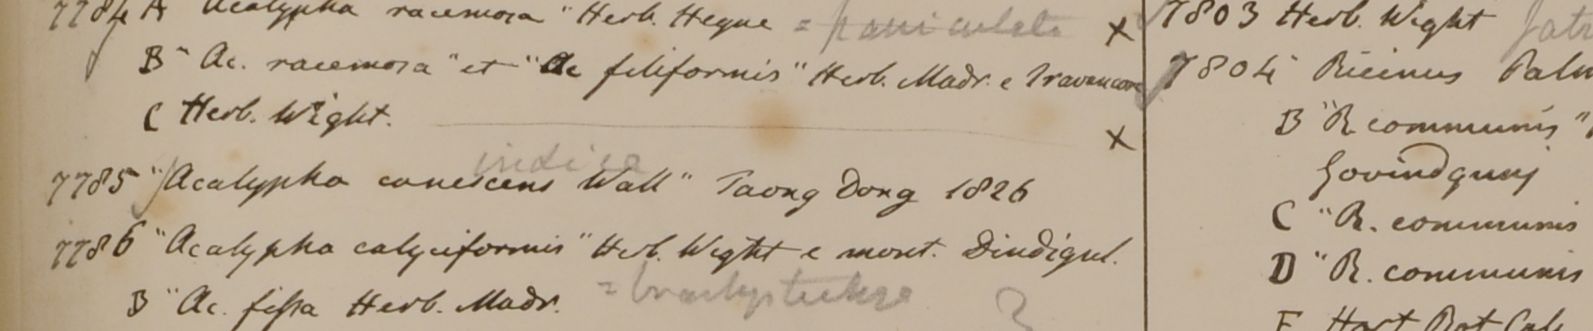 7784 A Acalypha racemosa" Herb. Heyne = paniculata x
B "Ac. racemosa" et "Ac filiformis" Herb. Madr. e Travancore
C Herb. Wight. x
indica
7785 "Acalypha canescens Wall" Taong Dong 1826
7786 "Acalypha calyciformis" Herb. Wight e mont. Dindigul.
B "Ac. fissa Herb. Madr. = brachystachya ?
7803 Herb. Wight Jatr
7804 Ricinus Palm
B "R communis"
Govindgunj
C "R. communis
D "R. communis
E Hort Bot Calc